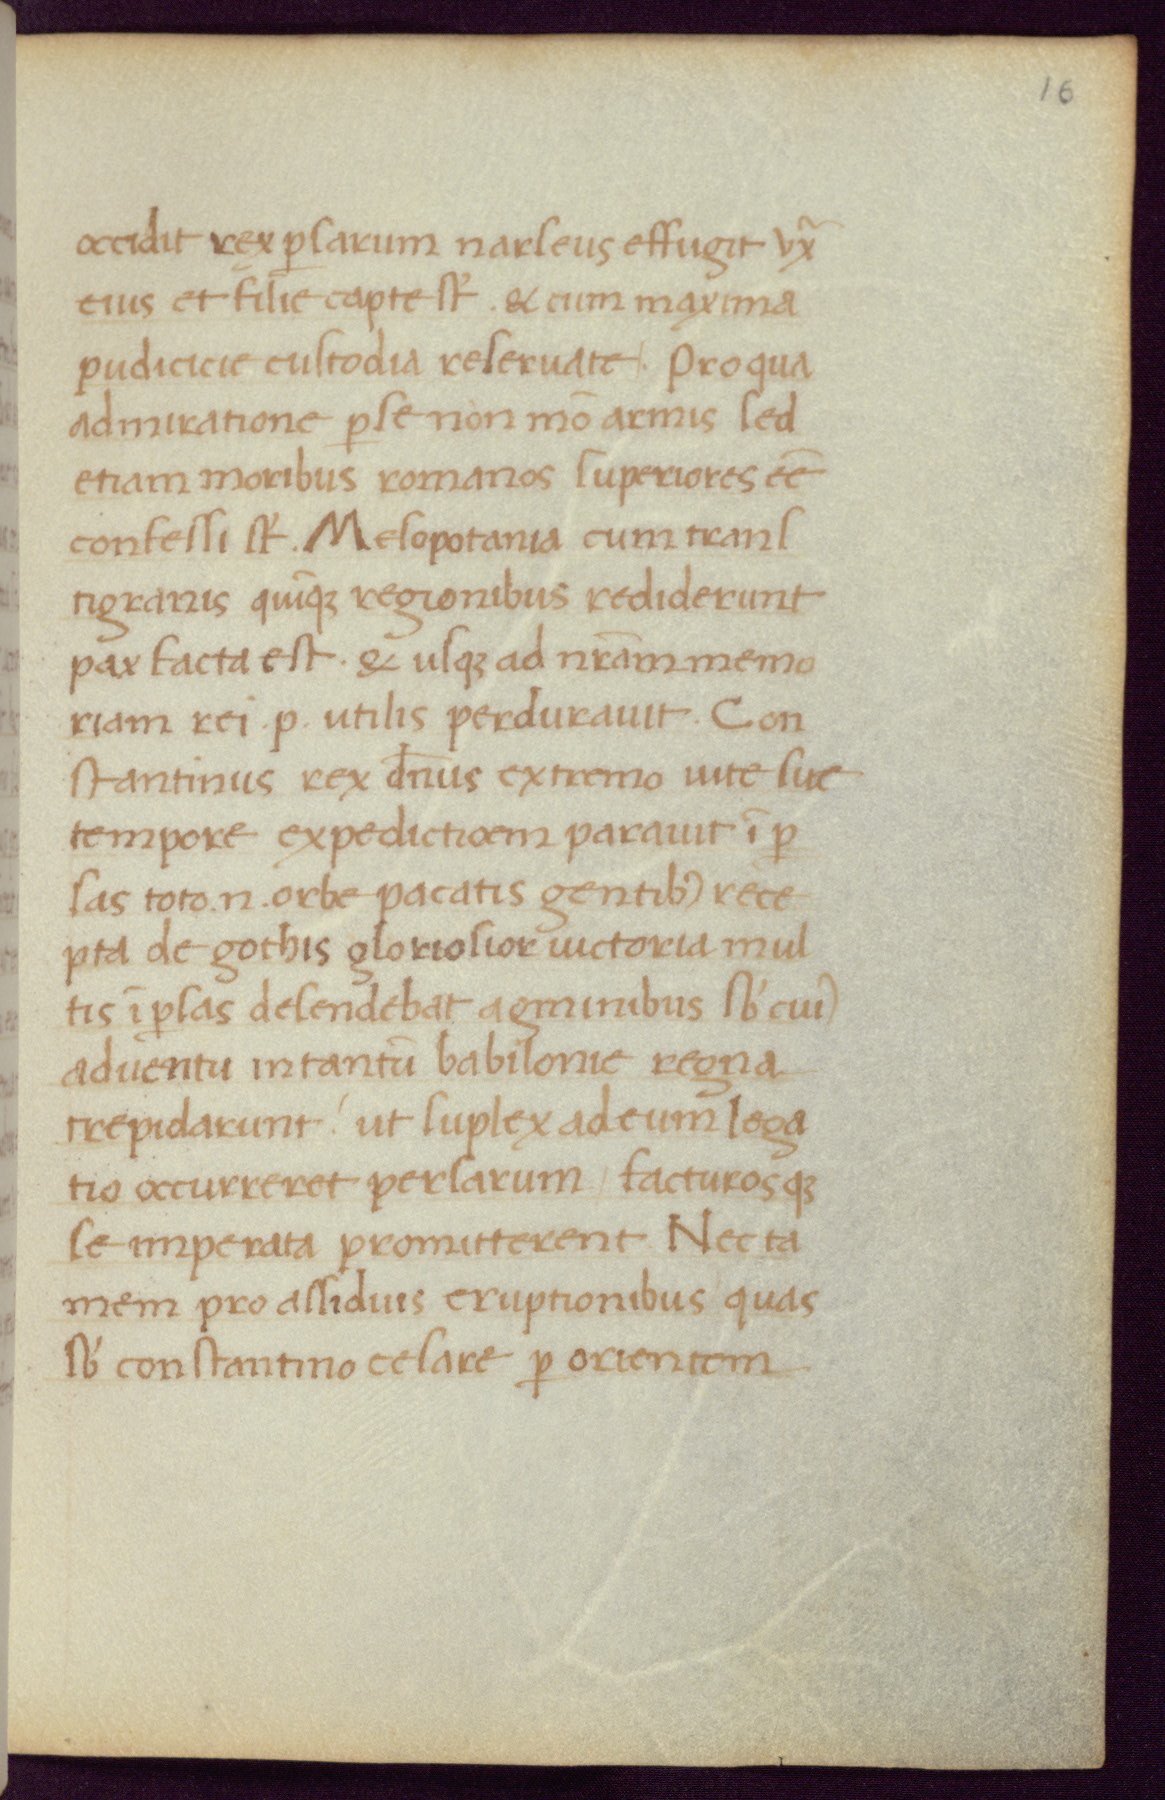 16
occidit rex ꝑsarum narseus effugit vx̃
eius et filie capte st̃. & cum maxima
pudicicie custodia reseruate. Pro qua
admiratione ꝑse non mõ armis sed
etiam moribus romanos superiores eē
confessi st̃. Mesopotania cum trans
tigranis quīqꝫ regionibus rediderunt
pax facta est. & usqꝫ ad nr̄am memo
riam rei .p. utilis perdurauit. Con
stantinus rex dñius extremo uite sue
tempore expedictioem parauit ī ꝑ
sas toto .n. orbe pacatis gentibꝰ rece
pta de gothis gloriosior uictoria mul
tis ī ꝑsas desendebat agminibus sb̓ cuiꝰ
aduentu in tantū babilonie regna
trepidarunt! ut suplex ad eum lega
tio occurreret persarum / facturosqꝫ
se imperata promitterent Nec ta
mem pro assiduis eruptionibus quas
sb̓ constantino cesare ꝑ orientem